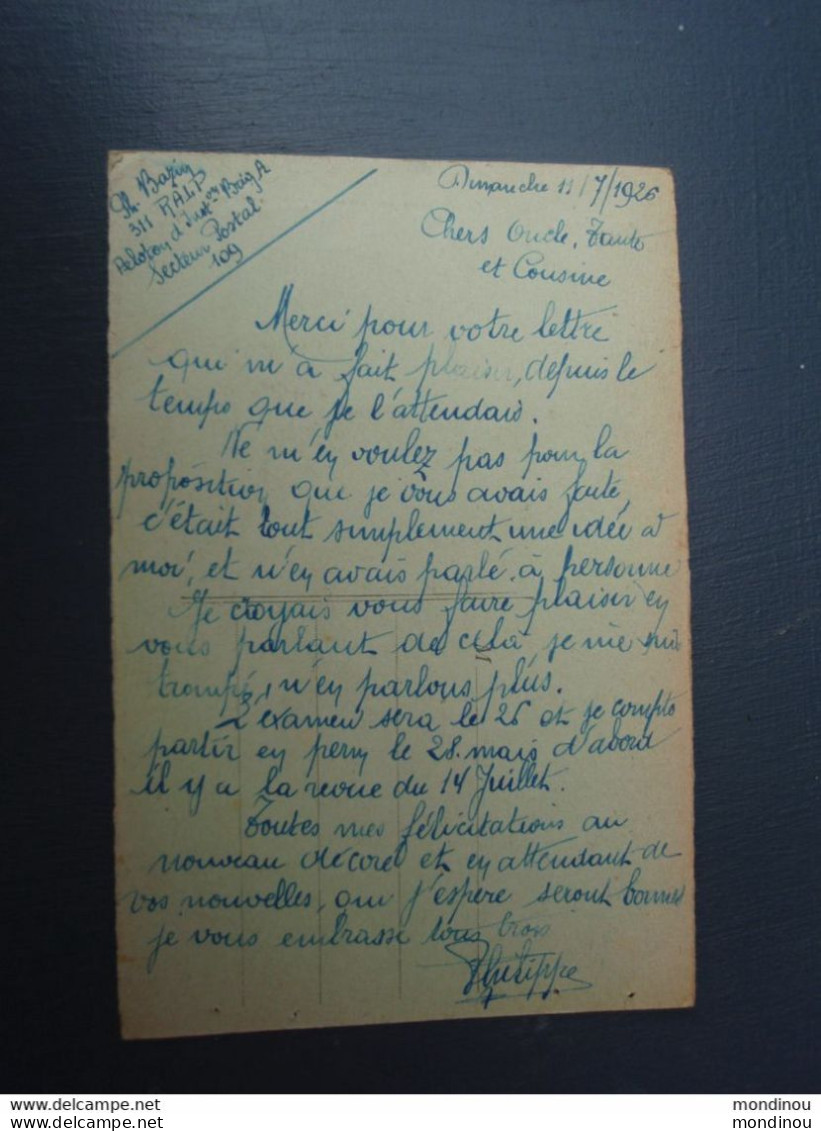 Ph. Bazin
311 RALP
Peloton d'Inst^on Brig A
Secteur Postal
109
Dimanche 11/7/1926
Chers Oncle, Tante
et Cousine
Merci pour votre lettre
qui m'a fait plaisir, depuis le
temps que je l'attendais.
Ne m'en voulez pas pour la
proposition que je vous avais faite,
c'était tout simplement une idée à
moi, et n'en avais parlé à personne
Je croyais vous faire plaisir en
vous parlant de cela, je me suis
trompé, n'en parlons plus.
L'examen sera le 26 et je compte
partir en perm le 28. mais d'abord
il y a la revue du 14 Juillet.
Toutes mes félicitations au
nouveau décoré et en attendant de
vos nouvelles, qui j'espère seront bonnes
je vous embrasse tous trois
Philippe
mondinou
mondinou